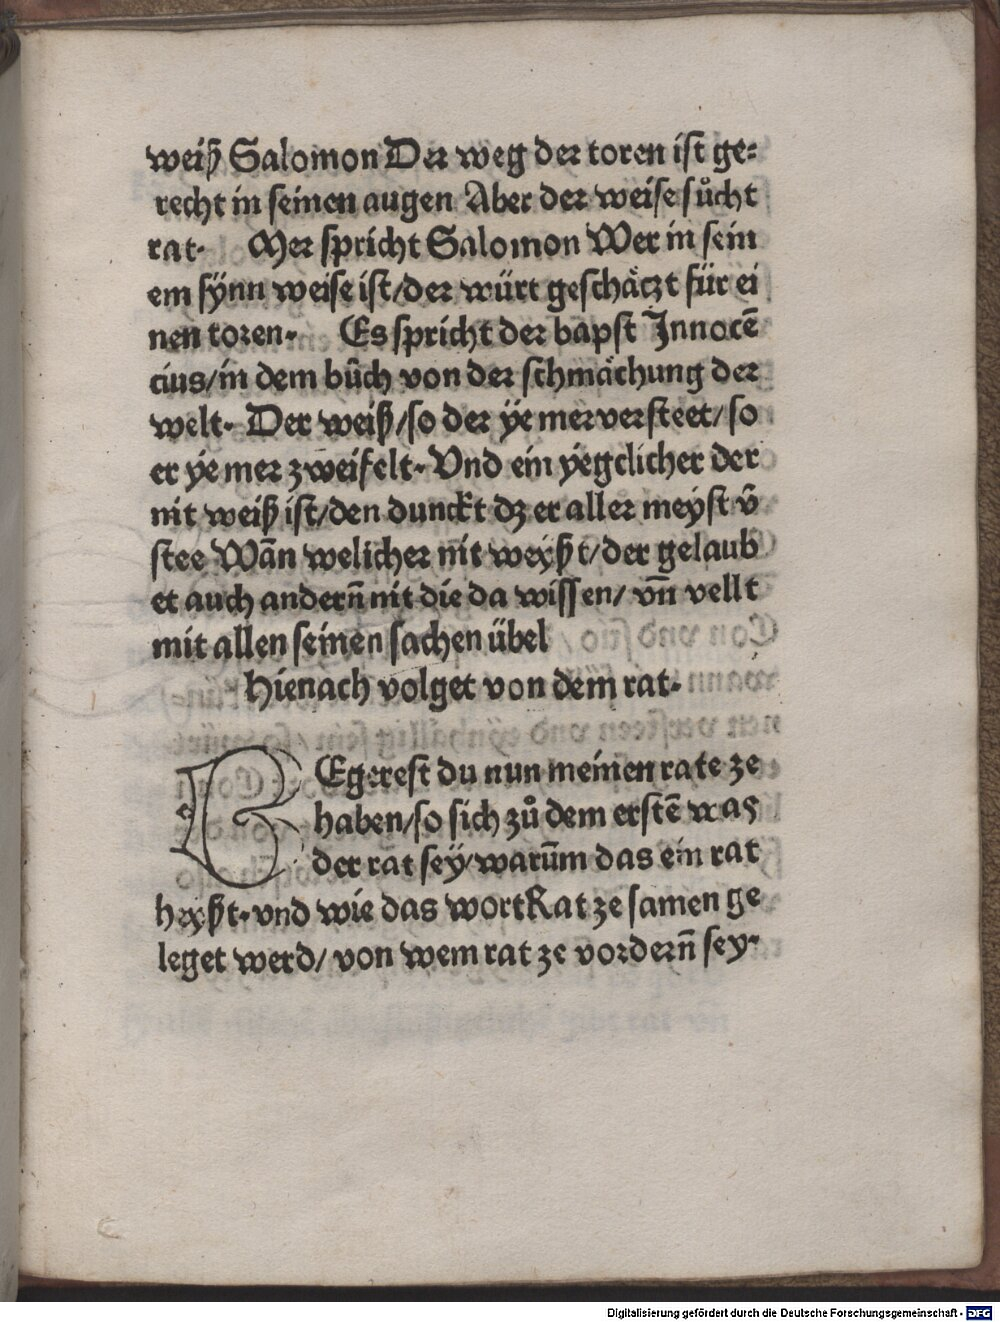 weiß Salomon Der weg der toren ist ge-
recht in seinen augen Aber der weise sůcht
rat. Mer spricht Salomon Wer in sein
em synn weise ist/der würt geschätzt für ei
nen toren. Es spricht der bapst Innocē
cius/in dem bůch von der schmächung der
welt. Der weiß/so der ye mer versteet/so
er ye mer zweifelt. Und ein yegclicher der
nit weiß ist/den dunckt dz er aller meyst v̄
stee Wān welicher nit weyßt/der gelaub
et auch andern̄ nit die da wissen/ vn̄ vellt
mit allen seinen sachen übel
Hienach volget von dem rat.
BEgerest du nun meinen rate ze
haben/so sich zů dem erstē was
der rat sey/warūm das ein rat
heyßt.vnd wie das wort Rat ze samen ge
leget werd/ von wem rat ze vordern̄ sey.
Digitalisierung gefördert durch die Deutsche Forschungsgemeinschaft - DFG